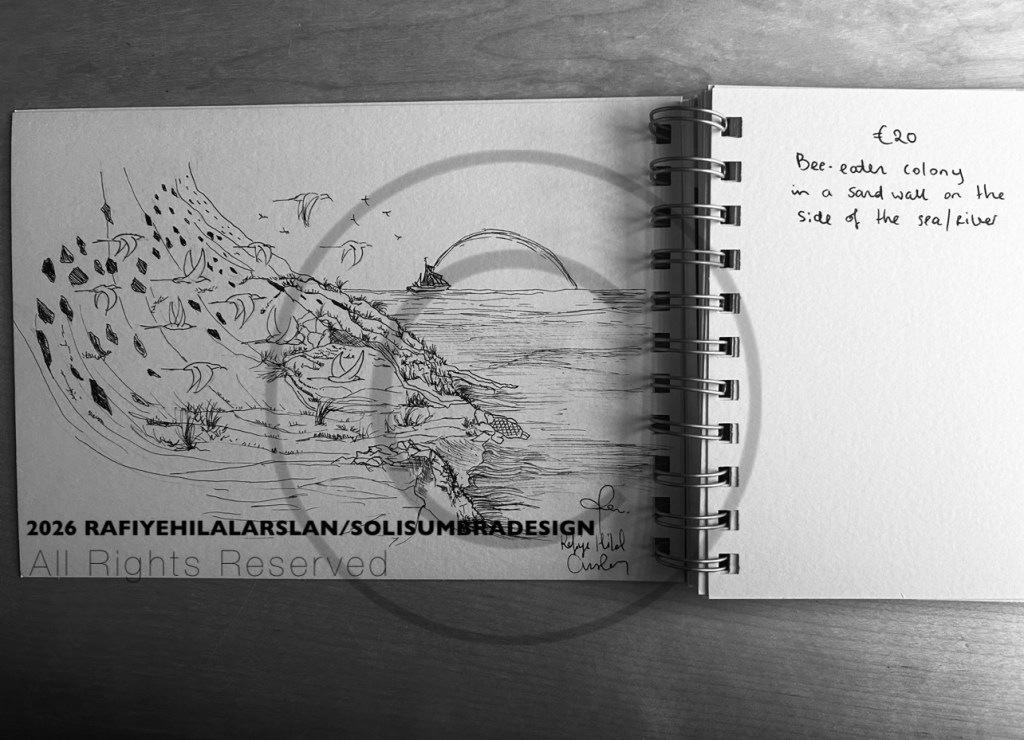 €20
Bee-eater colony
in a sand wall on the
side of the sea/river
2026 RAFIYEHILALARSLAN/SOLISUMBRADESIGN
All Rights Reserved
Rafiye Hilal
Arslan